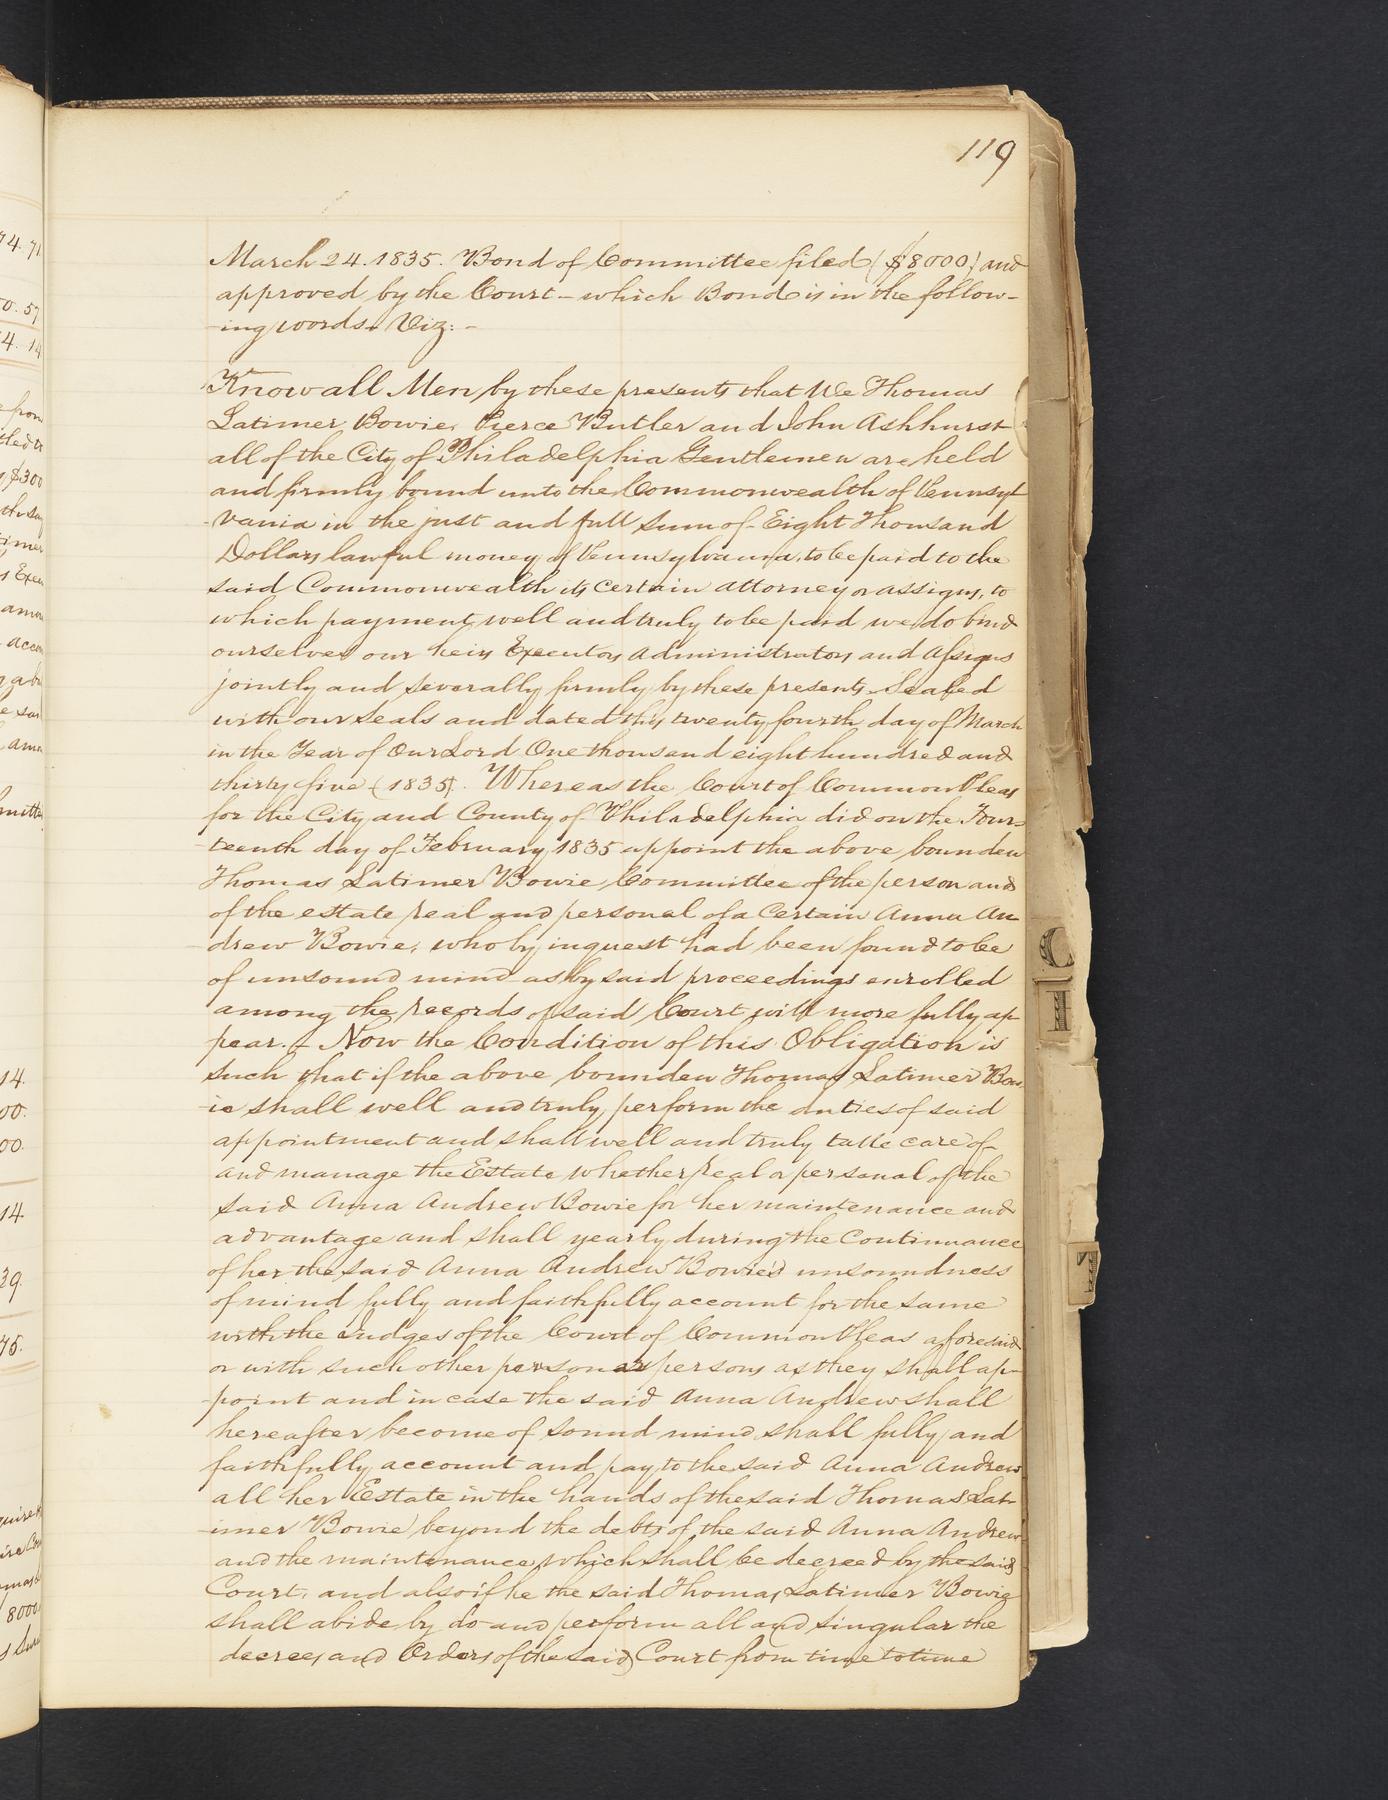 119
March 24. 1835. Bond of Committee filed ($8000) and
approved by the Court – which Bond is in the follow-
-ing words. Viz: -
Know all Men by these presents that We Thomas
Latimer Bowie, Pierce Butler and John Ashhurst
all of the City of Philadelphia Gentlemen are held
and firmly bound unto the Commonwealth of Pennsyl-
-vania in the just and full sum of Eight Thousand
Dollars lawful money of Pennsylvania, to be paid to the
said Commonwealth its certain attorney or assigns, to
which payment well and truly to be paid we do bind
ourselves our heirs Executors administrators and Assigns
jointly and severally firmly by these presents. Sealed
with our Seals and dated this twenty fourth day of March
in the Year of Our Lord One thousand eight hundred and
thirty five (1835). Whereas the Court of Common Pleas
for the City and County of Philadelphia did on the Four-
-teenth day of February 1835 appoint the above bounden
Thomas Latimer Bowie, Committee of the person and
of the estate real and personal of a Certain Anna An-
drew Bowie, who by inquest had been found to be
of unsound mind as by said proceedings enrolled
among the records of said Court will more fully ap-
pear. – Now the Condition of this Obligation is
such that if the above bounden Thomas Latimer Bow-
-ie shall well and truly perform the duties of said
appointment and shall well and truly take care of
and manage the Estate whether real or personal of the
said Anna Andrew Bowie for her maintenance and
advantage and shall yearly during the Continuance
of her the said Anna Andrew Bowie's unsoundness
of mind fully and faithfully account for the same
with the Judges of the Court of Common Pleas aforesaid
or with such other person or persons as they shall ap-
-point and in case the said Anna Andrew shall
hereafter become of sound mind shall fully and
faithfully account and pay to the said Anna Andrew
all her Estate in the hands of the said Thomas Lat-
-imer Bowie beyond the debts of the said Anna Andrew
and the maintenance which shall be decreed by the said
Court, and also if he the said Thomas Latimer Bowie
shall abide by do and perform all and singular the
decrees and Orders of the said Court from time to time
74. 71
0. 57
4. 14
$300
14.
00.
00.
14
39.
75.
8000
C
I
T